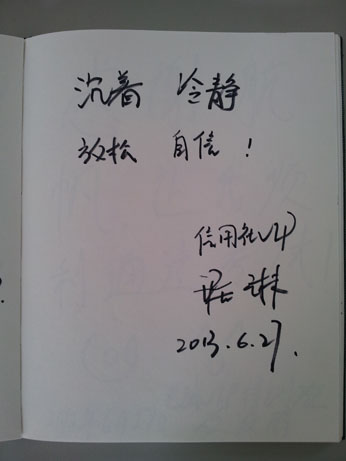 沉着 冷静
放松 自信!
信用社VP
琳
2013.6.27.